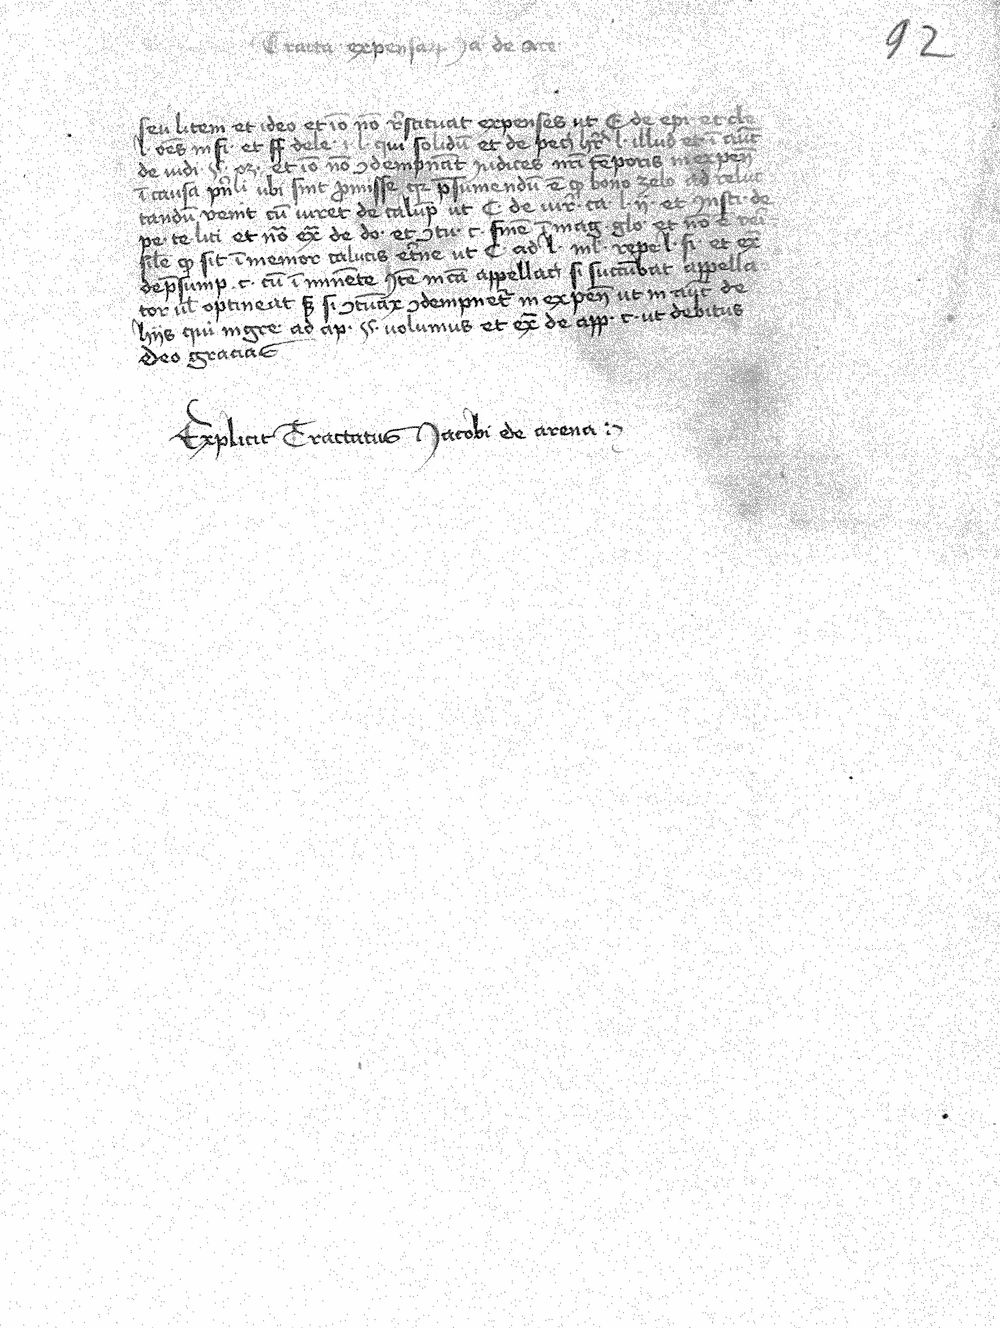 Tracta expensaꝝ Ja de are
92
seu litem et ideo et iō nō r̄stituat expensas ut C de epi et cle
l. oēs in fi. et ff dele .i. l. qui solidū et de peti her̄ l. illud et ī aut̄
de iudi §. oꝫ. et iō nō ꝯdempnāt judices nr̄i tēporis in expen̄
ī causa pn̄li ubi sint ꝓmisse qꝛ p̄sumendū ē ꝙ bono zelo ad
tandū venit cū iuret de calūp ut C de iur̄. ca. l. ii. et Insti. de
pe. te. liti et nō ex̄ de do. et ꝯtu. c. fine ī mag glo et nō
sile ꝙ sit ī memor calucis ut C ad l. iul̄ repe l. si et ex̄
de p̄sump. c. cū ī appellaci si succūbat appella
tor ul̄ optineat sꝫ si ꝯtuax ꝯdempnet̄ in expen̄ ut in aut̄ de
hijs qui ingre ad ap. §. volumus et ex̄ de app. c. ut debitus
deo gracias
Explicit Tractatus Jacobi de arena :~